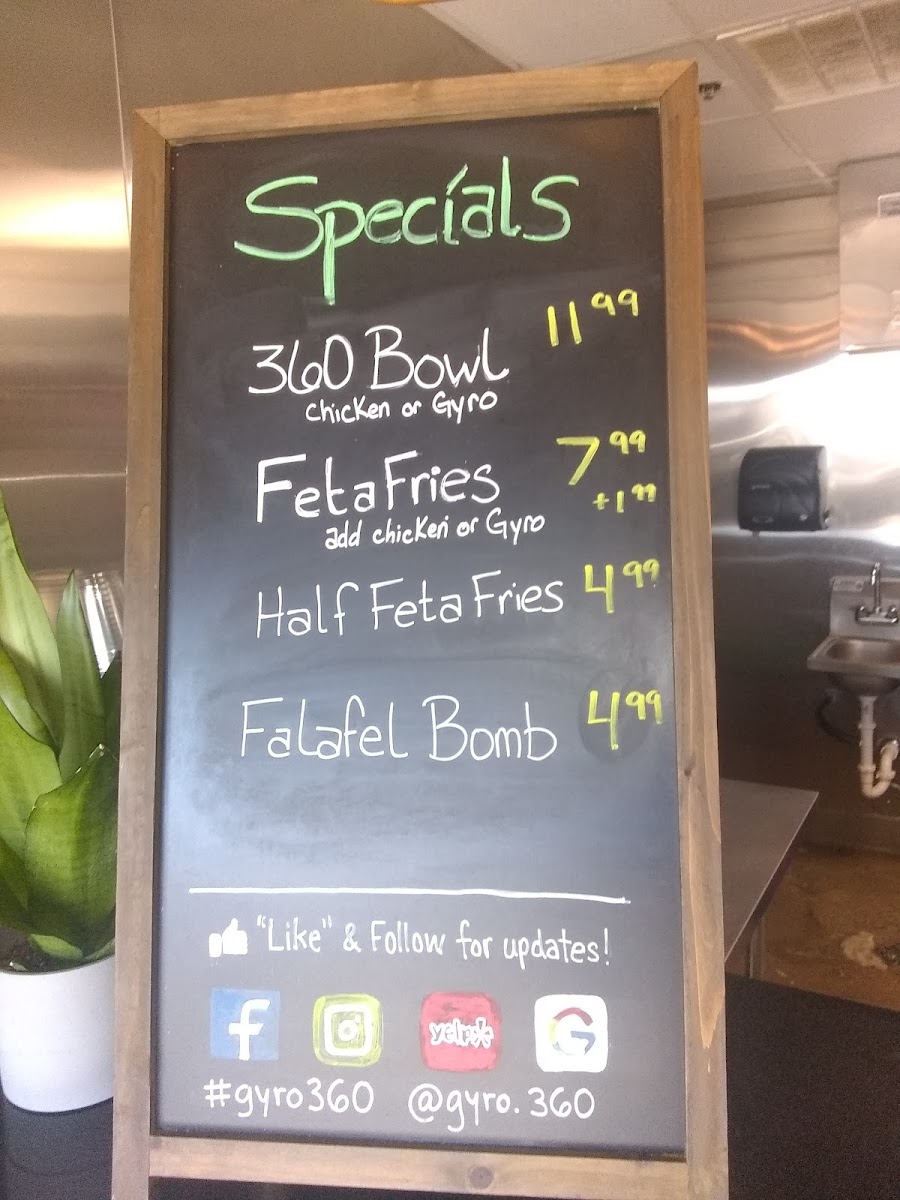 Specials
360 Bowl 11.99
chicken or Gyro
Feta Fries 7.99
add chicken or Gyro +1.99
Half Feta Fries 4.99
Falafel Bomb 4.99
"Like" & Follow for updates!
f yelp G
#gyro360 @gyro.360